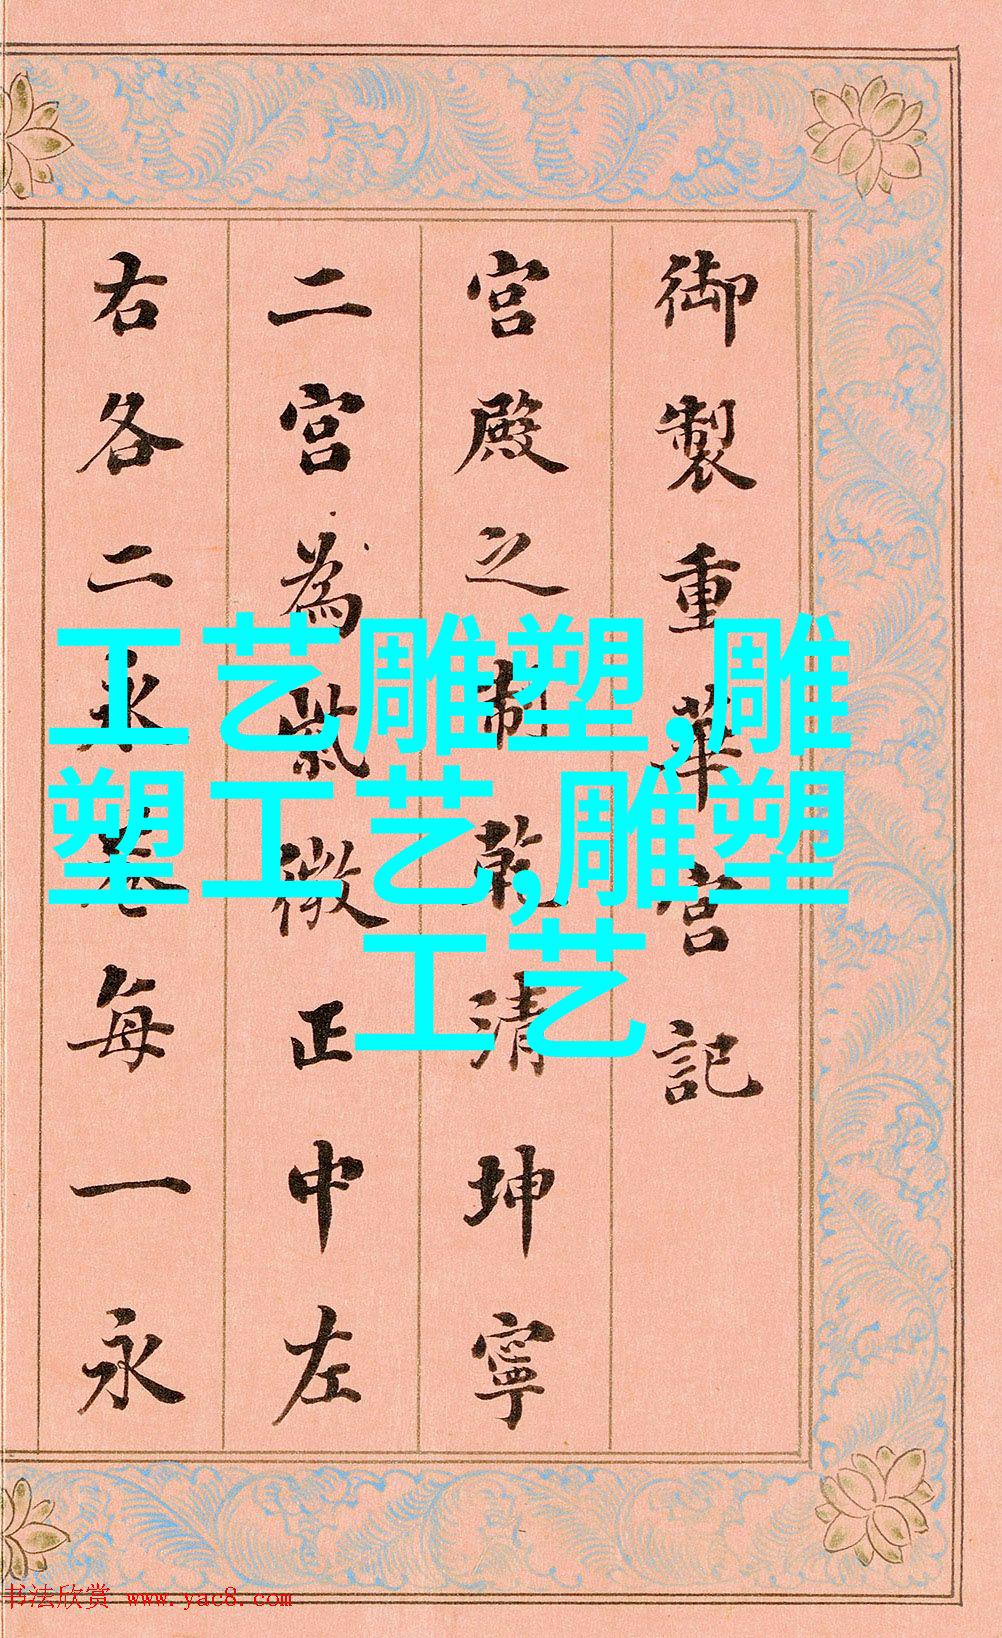 御製重華宮記
宮殿之制乾清坤寧
二宮為紫微正中左
右各二永巷每一永
工艺雕塑,雕
塑工艺,雕塑
工艺
书法欣赏 www.yac8.com